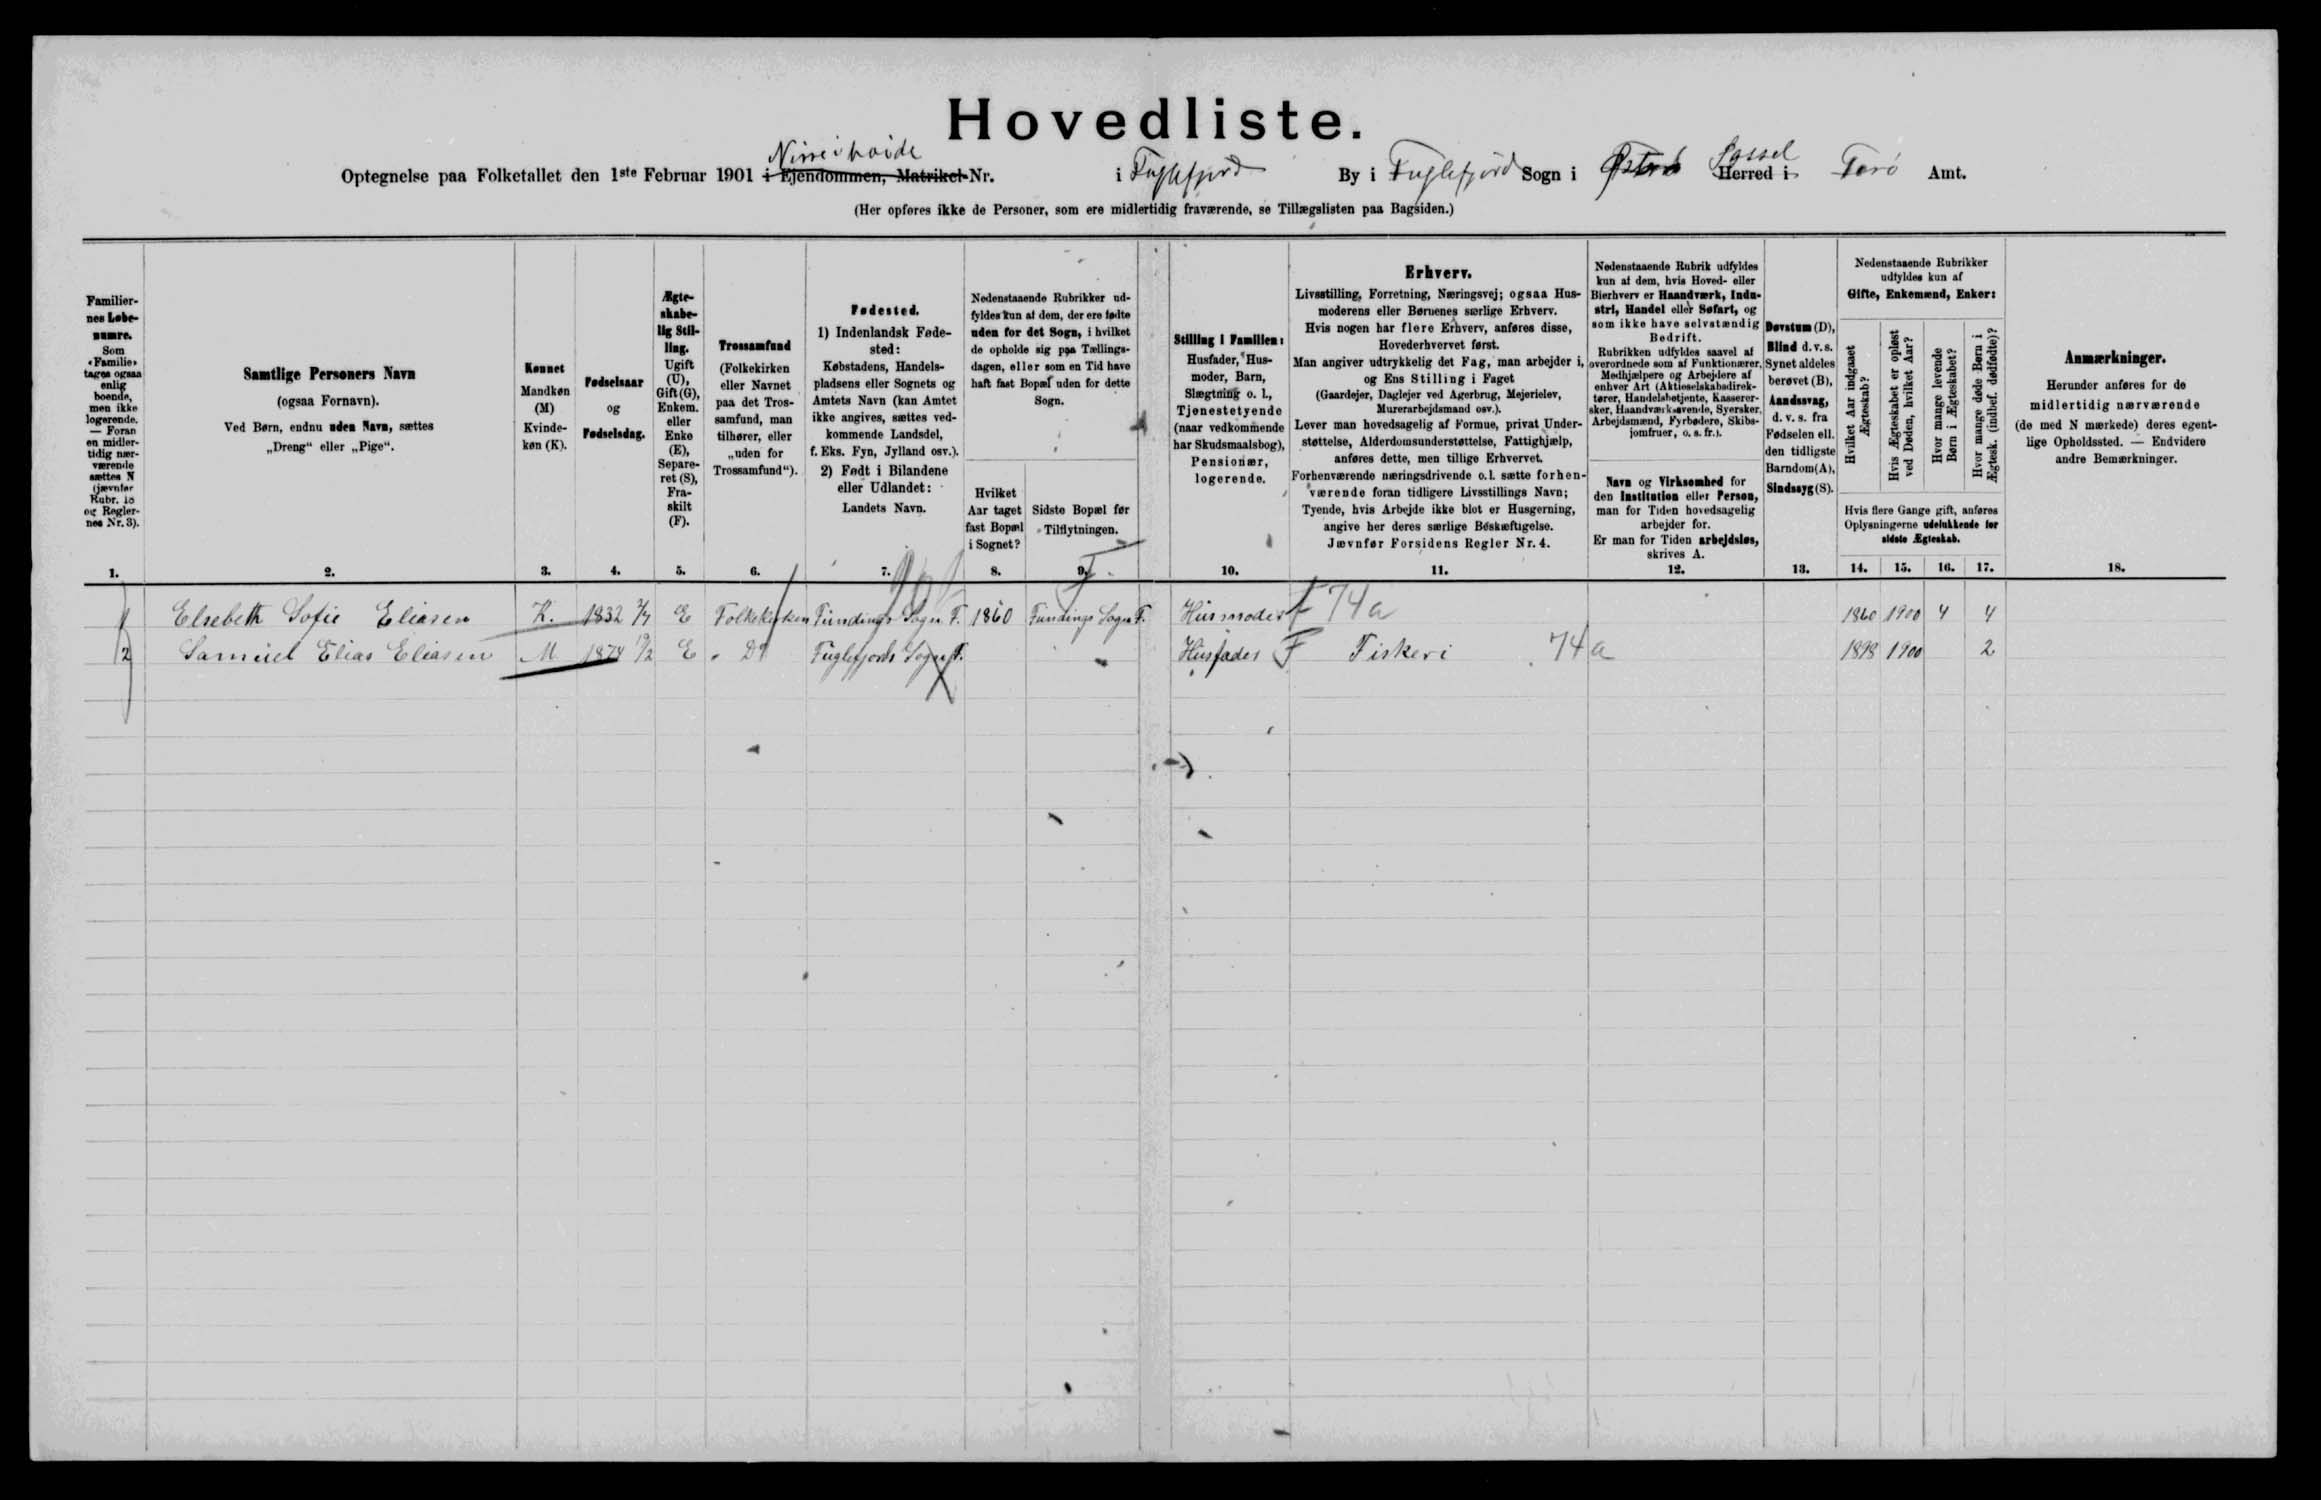 Hovedliste.
Optegnelse paa Folketallet den 1ste Februar 1901 i Ejendommen, Matrikel-Nr. i Fuglefjord By i Fuglefjord Sogn i Østerø Syssel Herred i Færø Amt.
(Her opføres ikke de Personer, som ere midlertidig fraværende, se Tillægslisten paa Bagsiden.)
Familiernes Løbenumre.
Som «Familie» tages ogsaa enlig boende, men ikke logerende. — Foran en midlertidig nærværende sættes N (jævnfør Rubr. 18 og Reglernes Nr. 3).
1.
Samtlige Personers Navn
(ogsaa Fornavn).
Ved Børn, endnu uden Navn, sættes
„Dreng“ eller „Pige“.
2.
Kønnet
Mandkøn (M)
Kvindekøn (K).
3.
Fødselsaar
og
Fødselsdag.
4.
Ægteskabelig Stilling.
Ugift (U), Gift (G), Enkem. eller Enke (E), Separeret (S), Fraskilt (F).
5.
Trossamfund
(Folkekirken eller Navnet paa det Trossamfund, man tilhører, eller „uden for Trossamfund“).
6.
Fødested.
1) Indenlandsk Fødested:
Købstadens, Handelspladsens eller Sognets og Amtets Navn (kan Amtet ikke angives, sættes vedkommende Landsdel, f. Eks. Fyn, Jylland osv.).
2) Født i Bilandene eller Udlandet:
Landets Navn.
7.
Nedenstaaende Rubrikker udfyldes kun af dem, der ere fødte uden for det Sogn, i hvilket de opholde sig paa Tællingsdagen, eller som en Tid have haft fast Bopæl uden for dette Sogn.
Hvilket Aar taget fast Bopæl i Sognet?
8.
Sidste Bopæl før Tilflytningen.
9.
Stilling i Familien:
Husfader, Husmoder, Barn, Slægtning o. l., Tjenestetyende (naar vedkommende har Skudsmaalsbog), Pensionær, logerende.
10.
Erhverv.
Livsstilling, Forretning, Næringsvej; ogsaa Husmoderens eller Børnenes særlige Erhverv.
Hvis nogen har flere Erhverv, anføres disse, Hovederhvervet først.
Man angiver udtrykkelig det Fag, man arbejder i, og Ens Stilling i Faget
(Gaardejer, Daglejer ved Agerbrug, Mejerielev, Murerarbejdsmand osv.).
Lever man hovedsagelig af Formue, privat Understøttelse, Alderdomsunderstøttelse, Fattighjælp, anføres dette, men tillige Erhvervet.
Forhenværende næringsdrivende o. l. sætte forhenværende foran tidligere Livsstillings Navn; Tyende, hvis Arbejde ikke blot er Husgerning, angive her deres særlige Beskæftigelse.
Jævnfør Forsidens Regler Nr. 4.
11.
Nedenstaaende Rubrik udfyldes kun af dem, hvis Hoved- eller Bierhverv er Haandværk, Industri, Handel eller Søfart, og som ikke have selvstændig Bedrift.
Rubrikken udfyldes saavel af overordnede som af Funktionærer, Medhjælpere og Arbejdere af enhver Art (Aktieselskabsdirektører, Handelsbetjente, Kasserersker, Haandværkssvende, Syersker, Arbejdsmænd, Fyrbødere, Skibsjomfruer, o. s. fr.).
Navn og Virksomhed for den Institution eller Person, man for Tiden hovedsagelig arbejder for.
Er man for Tiden arbejdsløs, skrives A.
12.
Døvstum (D), Blind d. v. s. Synet aldeles berøvet (B), Aandssvag, d. v. s. fra Fødselen ell. den tidligste Barndom (A), Sindssyg (S).
13.
Nedenstaaende Rubrikker udfyldes kun af
Gifte, Enkemænd, Enker:
Hvilket Aar indgaaet Ægteskab?
Hvis Ægteskabet er opløst ved Døden, hvilket Aar?
Hvor mange levende Børn i Ægteskabet?
Hvor mange døde Børn i Ægtesk. (indbef. dødfødte)?
Hvis flere Gange gift, anføres Oplysningerne udelukkende for sidste Ægteskab.
14. 15. 16. 17.
Anmærkninger.
Herunder anføres for de midlertidig nærværende (de med N mærkede) deres egentlige Opholdssted. — Endvidere andre Bemærkninger.
18.
1 Elsebeth Sofie Eliasen K. 1832 E Folkekirken Fundings Sogn F. 1860 Fundings Sogn F. Husmoder f 74a 1860 1900 4 4
2 Samuel Elias Eliasen M 1874 19/2 E " Do Fuglefjords Sogn F. Husfader F Fiskeri 74a 1898 1900 2